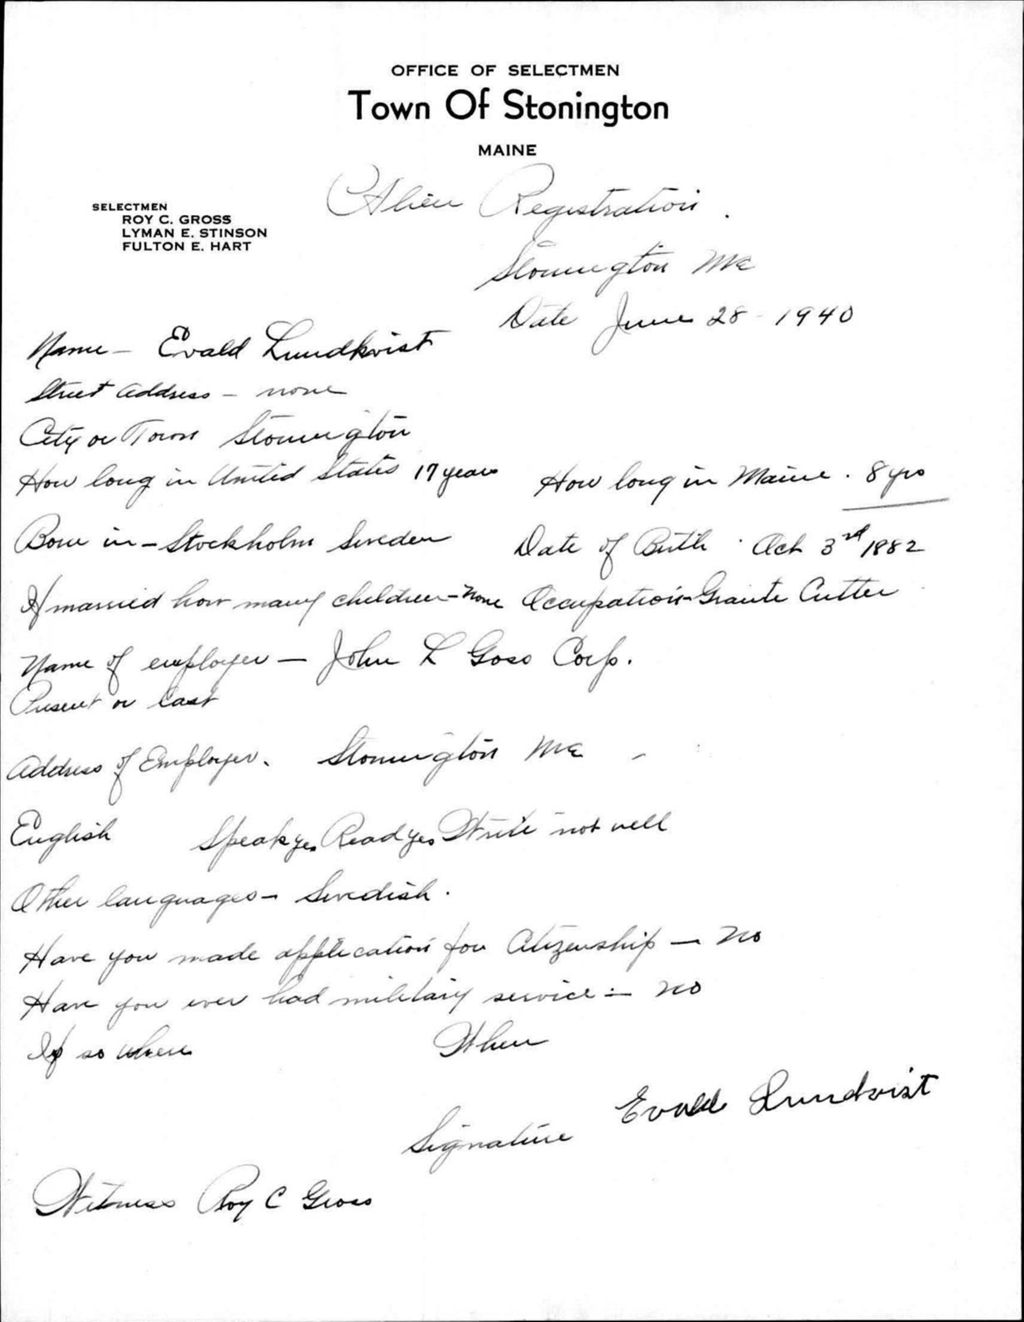 OFFICE OF SELECTMEN
Town Of Stonington
MAINE
SELECTMEN
ROY C. GROSS
LYMAN E. STINSON
FULTON E. HART
Alien Registration.
Stonington Me
Date June 28 - 1940
Name - Evald Lundkvist
Street Address - none
City or Town Stonington
How long in United States 17 years How long in Maine. 8 yrs
Born in - Stockholm Sweden Date of Birth Oct 3rd 1882
If married how many children - none Occupation - Granite Cutter
Name of employer - John L Goss Corp.
Present or last
Address of Employer. Stonington Me
English Speak yes Read yes Write not well
Other languages - Swedish.
Have you made application for Citizenship - no
Have you ever had military service - no
If so where When
Signature Evald Lundkvist
Witness Roy C Gross